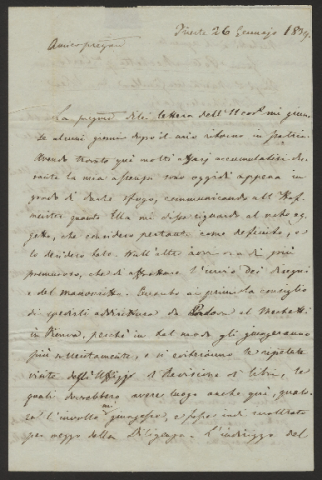 Trieste 26 Gennajo 1839.
Amico preg.mo
La preg.ma di lei lettera dell' 11 cor.te mi giun-
se alcuni giorni dopo il mio ritorno in patria.
Avendo trovato qui molti affari accumulatisi du-
rante la mia assenza sono oggidì appena in
grado di darle sfogo, comunicando all'
quanto Ella mi disse riguardo al noto og-
getto, che considero pertanto come definito, e
lo desidero tale. Null' altro ora di più
premuroso, che di affrettare l'invio dei disegni
e del manoscritto. Quanto ai primi la consiglio
di spedirli addirittura da Padova al
in Vienna, perchè in tal modo gli giungeranno
più sollecitamente, e si eviteranno le ripetute
visite degli Uffizj di Revisione di libri, le
quali dovrebbero avere luogo anche qui, qualo-
ra l'involto mi giungesse, e fosse indi inoltrato
per mezzo della Diligenza. L'indirizzo del